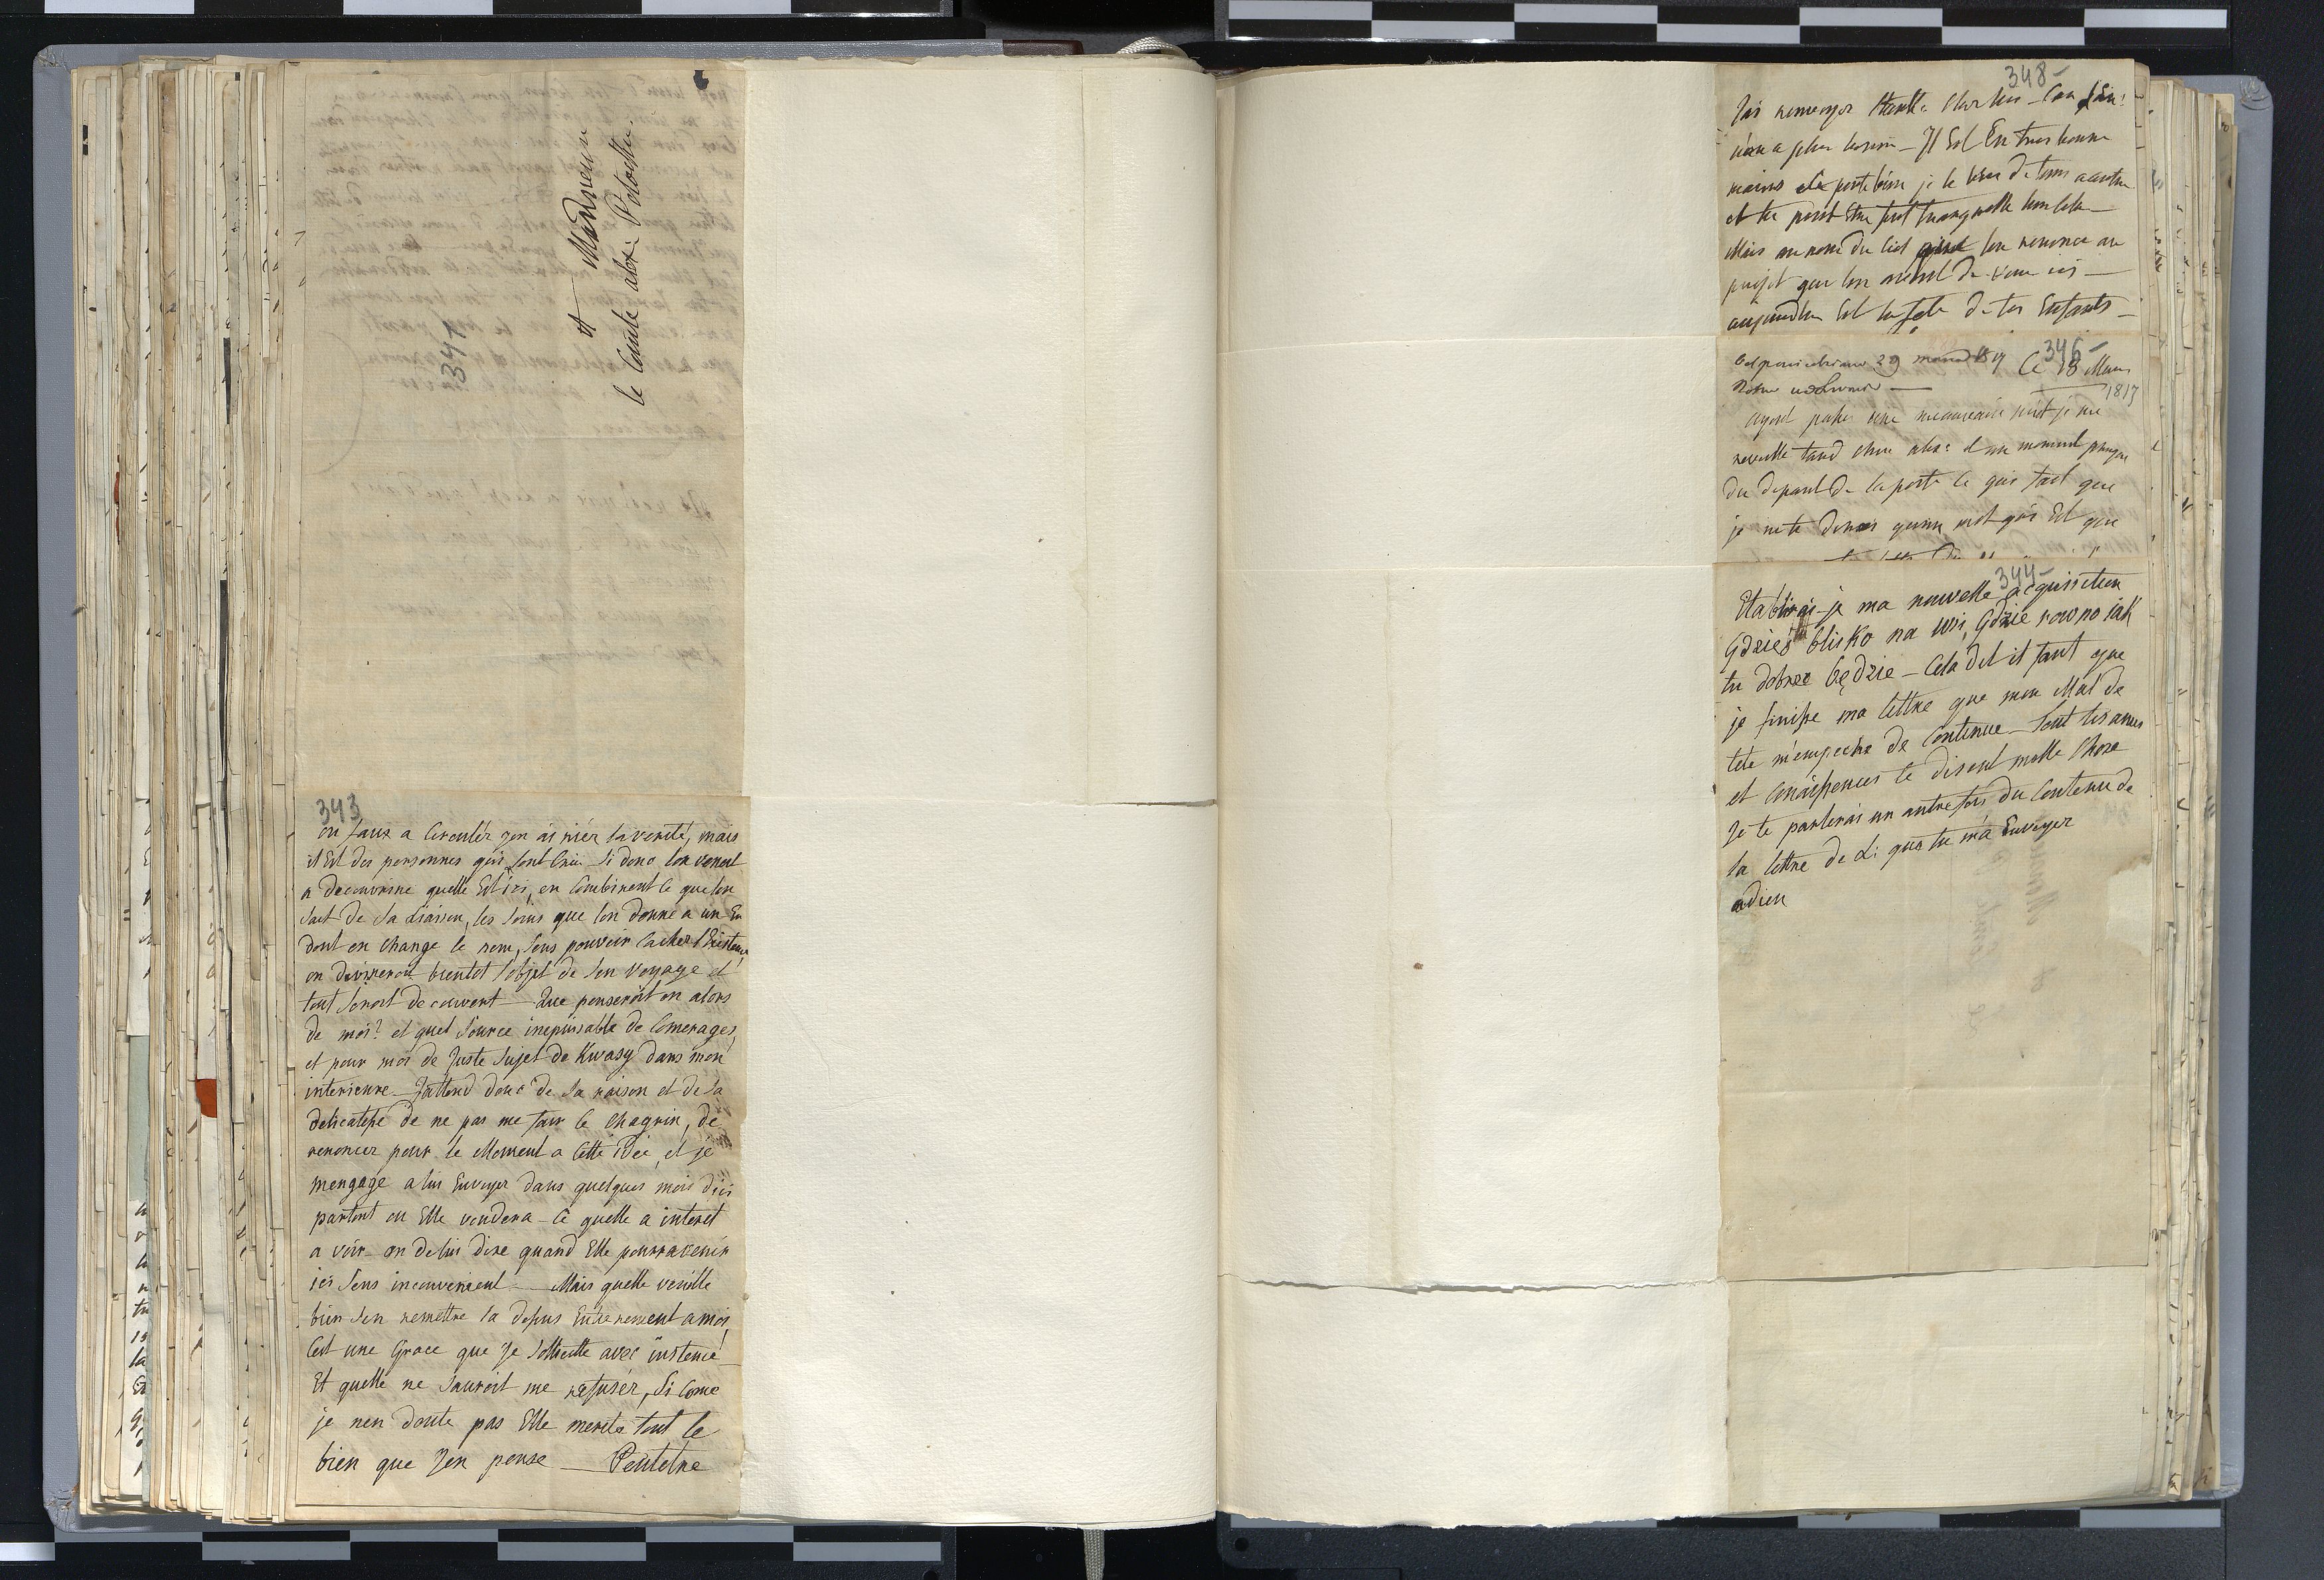 347
A Monsieur
le Comte alex: Potocki.
343
ou faux a Circulér jen ái niér la verité, mais
il Est des personnes qúi sont Criu Si donc lon venoit
a decouvrire quelle Est ici, en Combinent le que lon
sait de Sa Liaison, les soins que lon donne a un En
dont on change le nom, Sens pouvoir Cacher l'Existence
on devineroit bientot l'objet de Son voyage et
tout Seroit decouvert — Que penseroit on alors
de mói? et quel Source inepuisable de Comerages,
et pour mói de Juste Sujet de Kwasy dans mon
interieure — Jattend donc de Sa raison et de Sa
delicatesse de ne pas me fair le Chagrin, de
renoncer pour le Moment a Cette Idée, et je
mengage a lui Envoyer dans quelques mois d'ici
partout ou Elle voudera — Ce quelle a interet
a vóir — ou de lui dire quand Elle pourra venir
ici Sens inconvenient — Mais quelle veuille
bien Sen remettre la depus Entierement a mói,
Cest une Grace que Je Sollicitte avec instence
Et quelle ne Sauroit me refusér, Si Come
je nen doute pas Elle merite tout le
bien que Jen pense — Peutetre
348 —
n'en a plus besoin — Il Est En tres bonne
mains et se porte bien je le
et tu peut Etre tout tranquille sur cela —
Mais au nom du Ciel que lon renonce au
projet que lon avoit de venir ici —
aujourdhui Est la fete de tes Enfants —
346 —
Ce 18 Mars
1817
ayant passé une mauvaise nuit je me
reveille tard cher alex: et au moment presque
du depart de la poste ce qui fait que
je ne te dirais quun mot qui Est que
344 —
Etablirái-je ma nouvelle acquisition
Gdzieś blisko na wsi, Gdzie rowno iak
tu dobrze będzie — Cela dit il faut que
je finisse ma lettre que mon Mal de
tete m'empeche de Continue — Tout tes amis
et Conáissences te disent mille Chose
Je te parlerái un autre fois du Contenu de
la lettre de Li que tu m'a Envoyer
adieu